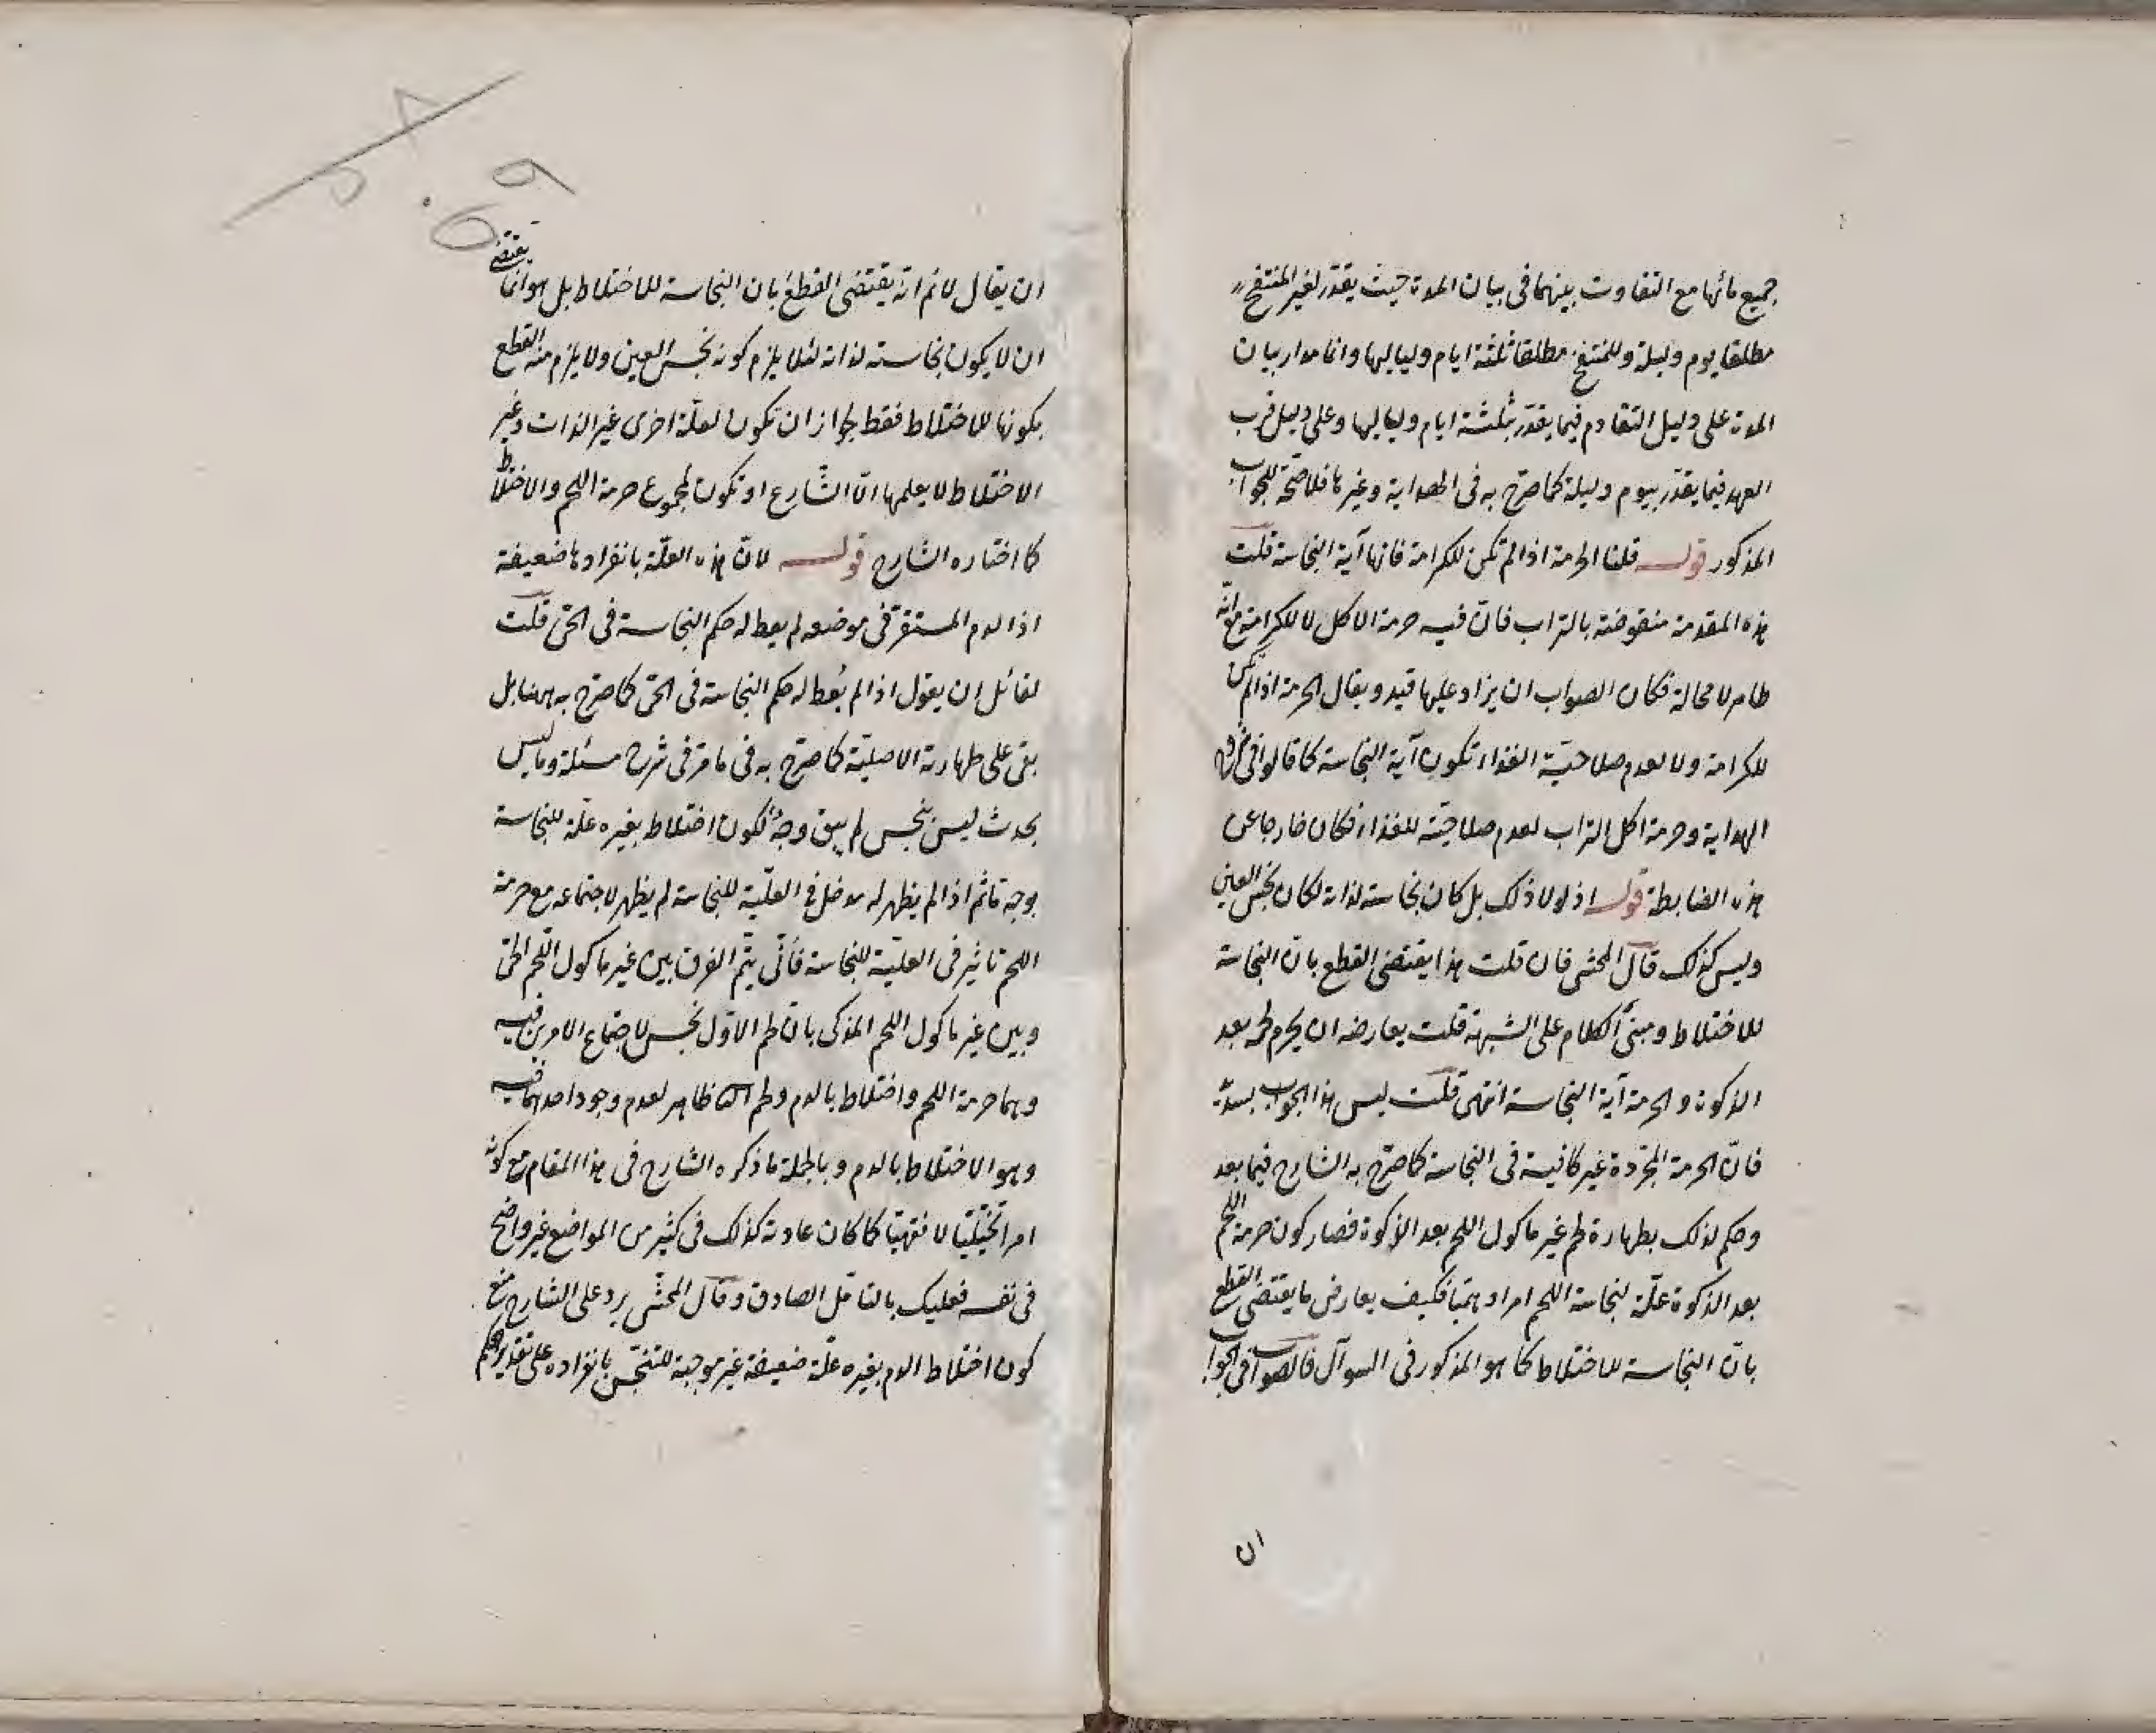 جميع مائها مع التفاوت بينهما فى بيان المدة حيث يقدر لغير المنتفخ
مطلقا يوم وليلة وللمنتفخ مطلقا ثلثة ايام ولياليها وانما مدار بيان
المدة على دليل التقادم فيما يقدر بثلثة ايام ولياليها وعلى دليل قرب
العهد فيما يقدر بيوم وليلة كما صرّح به فى الهداية وغيرها فلا صحّة للجواب
المذكور قوله قلنا الحرمة اذا لم تكن للكرامة فانها آية النجاسة قلت
هذه المقدمة منقوضة بالتراب فانّ فيه حرمة الاكل لا للكرامة مع انّه
طاهر لا محالة فكان الصواب ان يزاد عليها قيد ويقال الحرمة اذا لم تكن
للكرامة ولا لعدم صلاحيّة الغذاء تكون آية النجاسة كما قالوا فى شروح
الهداية وحرمة اكل التراب لعدم صلاحيّته للغذاء فكان خارجا عن
هذه الضابطة قوله اذ لولا ذلك بل كان نجاسته لذاته لكان نجس العين
وليس كذلك قال المحشى فان قلت هذا يقتضى القطع بانّ النجاسة
للاختلاط ومبنى الكلام على الشبهة قلت يعارضه ان يحرم لحمه بعد
الذكوة والحرمة آية النجاسة انتهى قلت ليس هذا الجواب بسديد
فانّ الحرمة المجرّدة غير كافية فى النجاسة كما صرّح به الشارح فيما بعد
وحكم لذلك بطهارة لحم غير ماكول اللحم بعد الذكوة فصار كون حرمة اللحم
بعد الذكوة علّة لنجاسة اللحم امرا وهميّا فكيف يعارض ما يقتضى القطع
بانّ النجاسة للاختلاط كما هو المذكور فى السوآل فالصواب فى الجواب
ان
ان يقال لانم انّه يقتضى القطع بان النجاسة للاختلاط بل هو انما يقتضى
ان لا يكون نجاسته لذاته لئلا يلزم كونه نجس العين ولا يلزم منه القطع
بكونها للاختلاط فقط لجواز ان تكون لعلّة اخرى غير الذات وغير
الاختلاط لا يعلمها الّا الشّارع او تكون لمجموع حرمة اللحم والاختلاط
كما اختاره الشارح قوله لانّ هذه العلّة بانفرادها ضعيفة
اذا لدم المستقرّ فى موضعه لم يعط له حكم النجاسة فى الحىّ قلت
لقائل ان يقول اذا لم يُعط له حكم النجاسة فى الحىّ كما صرّح به ههنا بل
بقى على طهارته الاصليّة كما صرّح به فى ما مرّ فى شرح مسئلة وما ليس
بحدث ليس بنجس لم يبق وجهٌ لكون اختلاط بغيره علّة للنجاسة
بوجه ما ثم اذا لم يظهر له مدخل فى العلّيّة للنجاسة لم يظهر لاجتماعه مع حرمة
اللحم تاثير فى العلّيّة للنجاسة فأنّى يتمّ الفرق بين غير ماكول اللّحم الحىّ
وبين غير ماكول اللحم المذكى بانّ لحم الاوّل نجس لاجتماع الامرين فيه
وهما حرمة اللحم واختلاط بالدم ولحم الثانى طاهر لعدم وجود احدهما فيه
وهو الاختلاط بالدم وبالجملة ما ذكره الشارح فى هذا المقام مع كونه
امرا تخيّليّا لا فقهيّا كما كان عادته كذلك فى كثير من المواضع غير واضح
فى نفسه فعليك بالتامّل الصادق وقال المحشّى يرد على الشارح منع
كون اختلاط الدم بغيره علّة ضعيفة غير موجبة للتنجّس بانفراده على تقدير